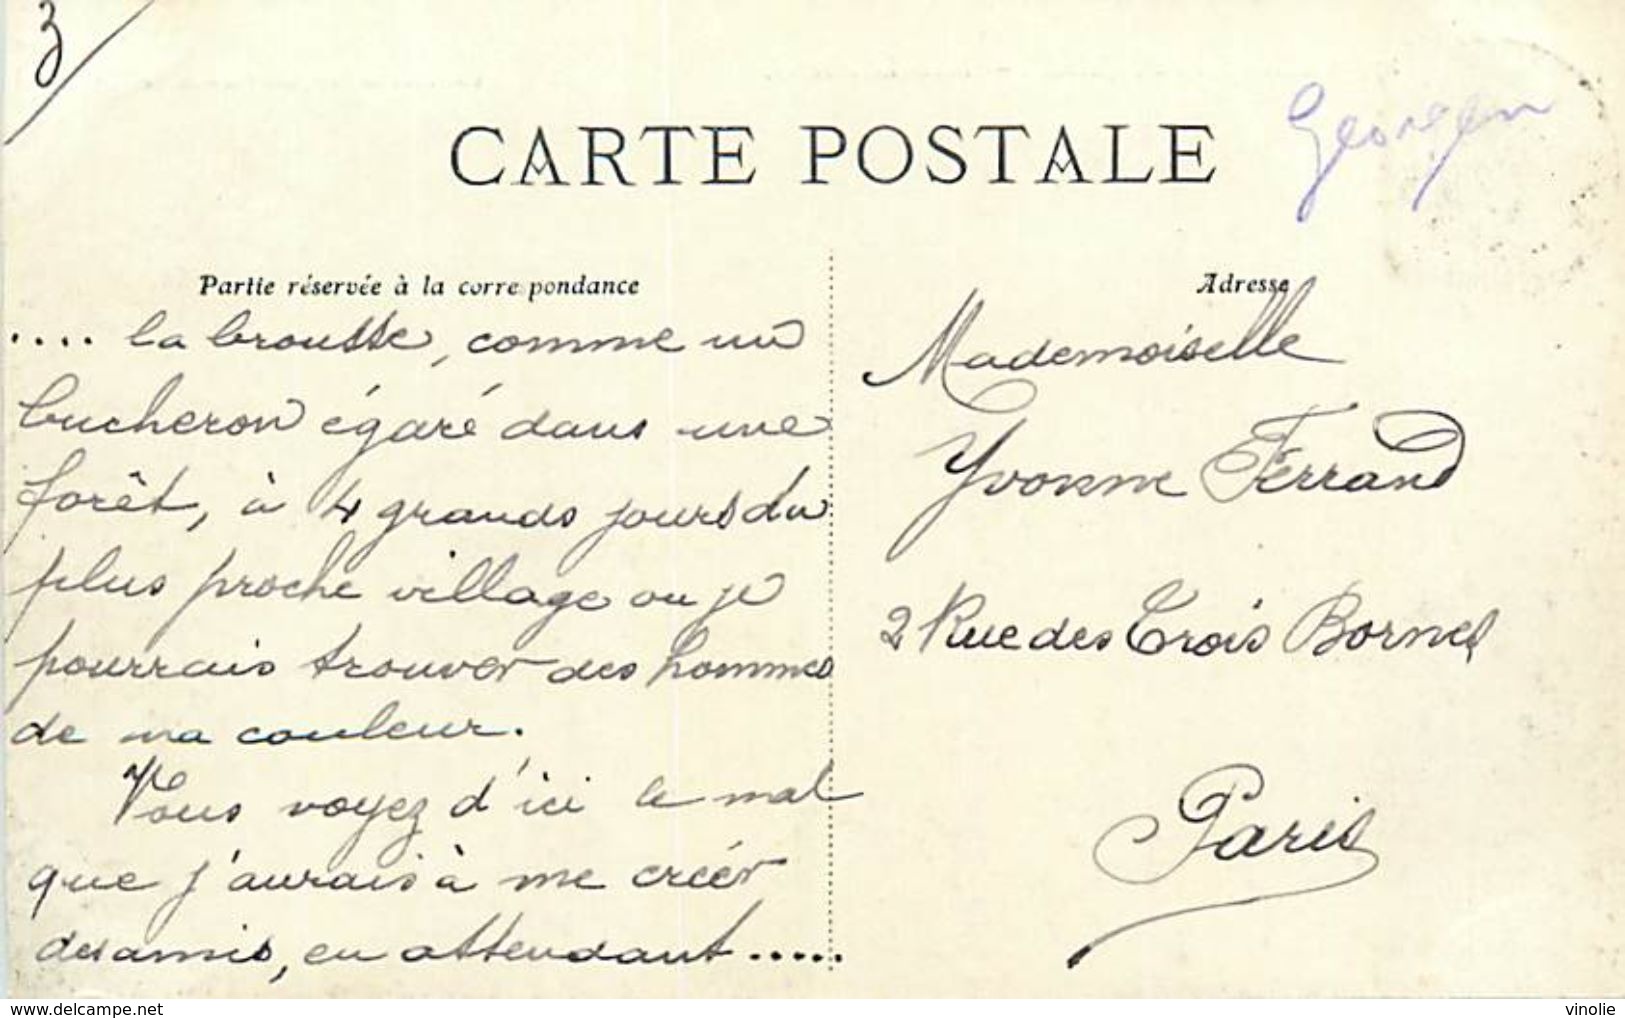 3
CARTE POSTALE
Partie réservée à la correspondance
Adresse
.... la brousse, comme un
bucheron égaré dans une
forêt, à 4 grands jours du
plus proche village ou je
pourrais trouver des hommes
de ma couleur.
Vous voyez d'ici le mal
que j'aurais à me créer
des amis, en attendant .....
Mademoiselle
Yvonne Ferrand
2 Rue des Trois Bornes
Paris
delcampe.net
vinolie